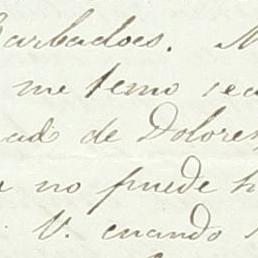 Barbadoes. M
me temo sea
ad de Dolores
no puede h
V. cuando